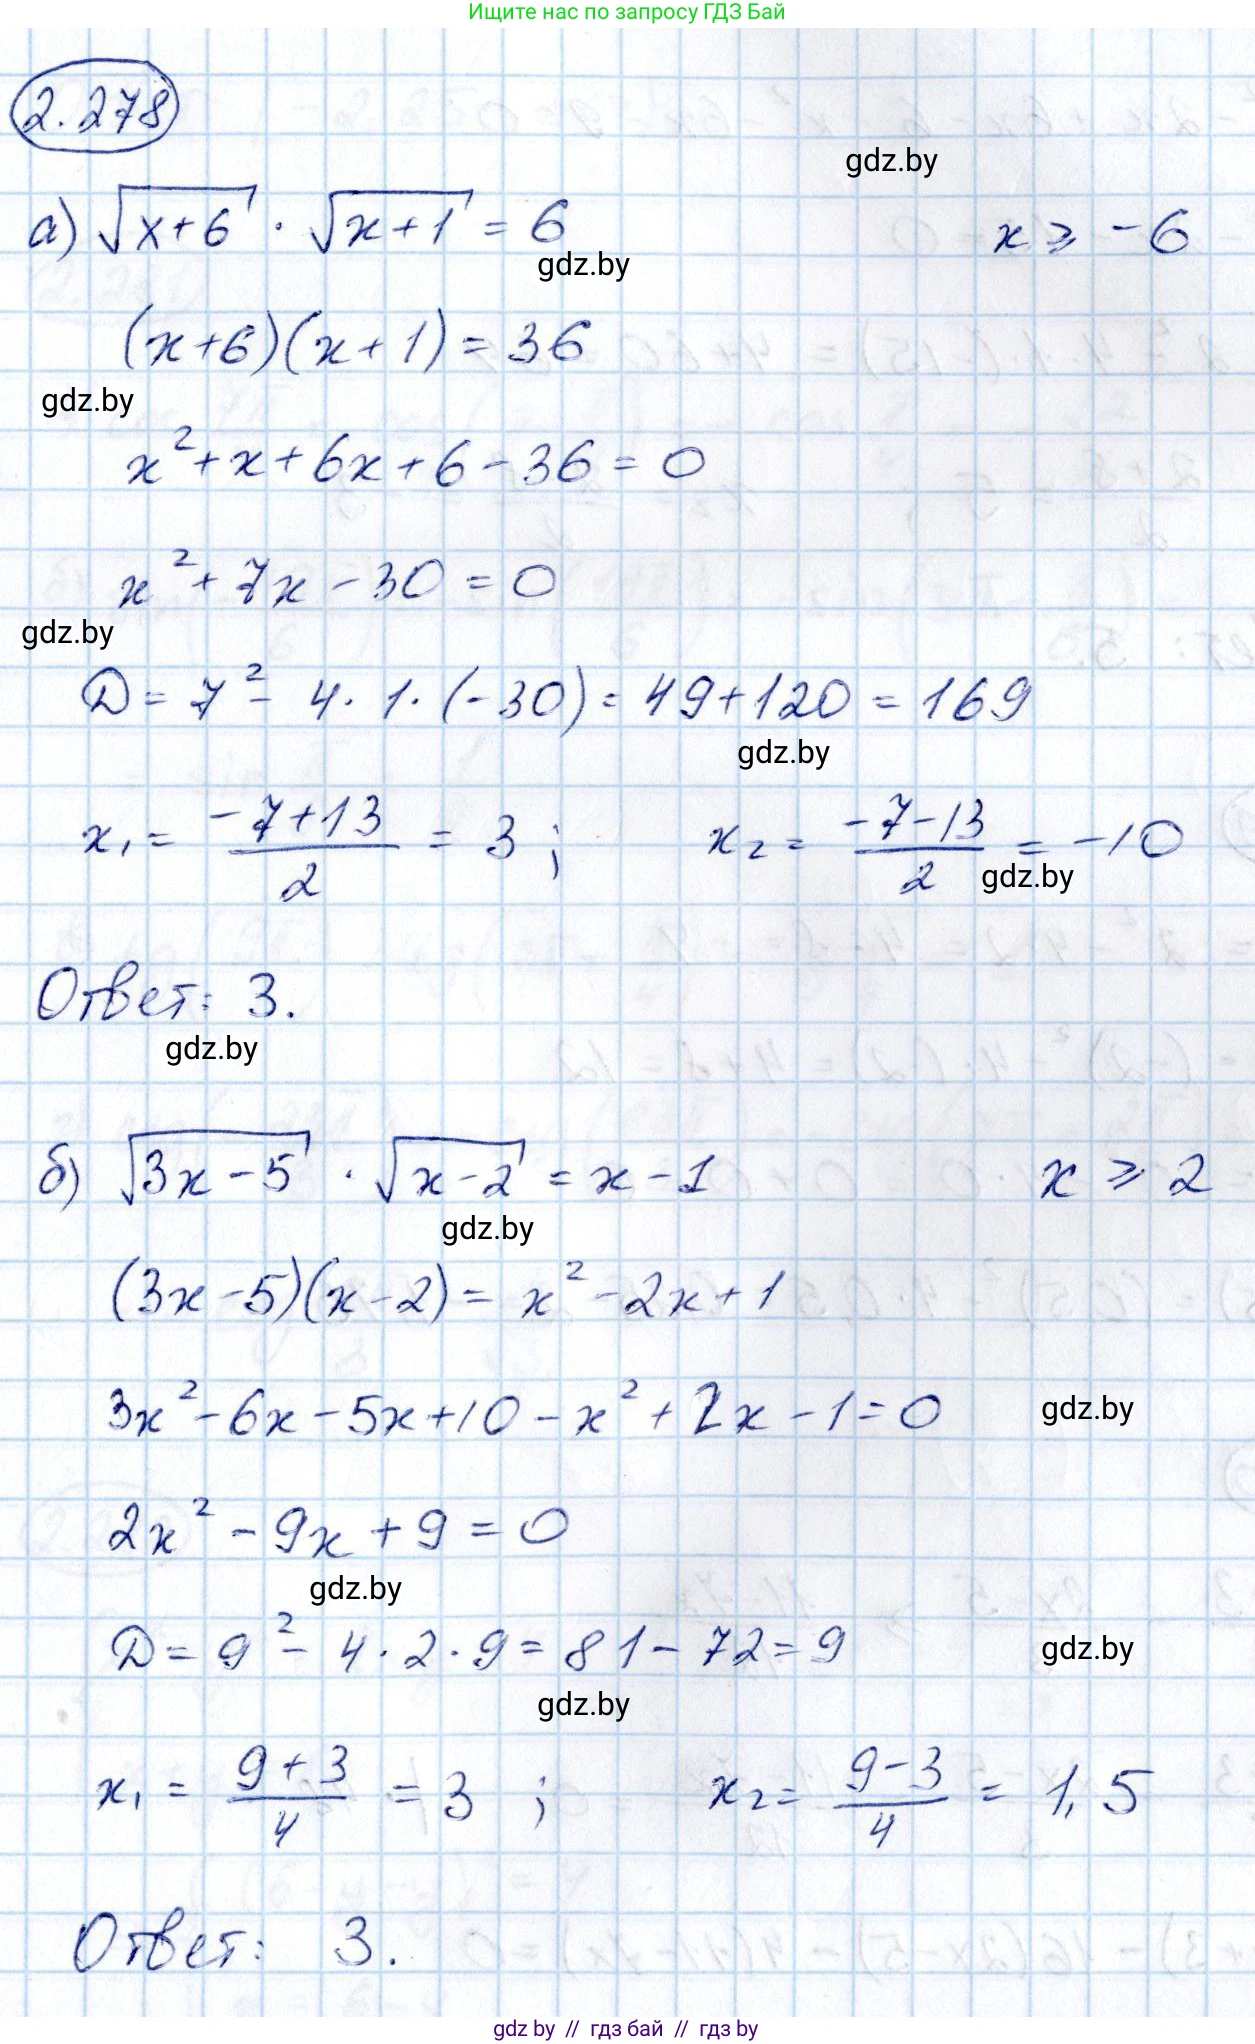 Ищите нас по запросу ГДЗ Бай
2.278
gdz.by
а) √(x+6) · √(x+1) = 6    x ⩾ -6
gdz.by
(x+6)(x+1) = 36
gdz.by
x² + x + 6x + 6 - 36 = 0
x² + 7x - 30 = 0
gdz.by
D = 7² - 4 · 1 · (-30) = 49 + 120 = 169
gdz.by
x₁ = (-7+13)/2 = 3 ;    x₂ = (-7-13)/2 = -10
gdz.by
Ответ: 3.
gdz.by
б) √(3x-5) · √(x-2) = x - 1    x ⩾ 2
gdz.by
(3x-5)(x-2) = x² - 2x + 1
3x² - 6x - 5x + 10 - x² + 2x - 1 = 0
gdz.by
2x² - 9x + 9 = 0
gdz.by
D = 9² - 4 · 2 · 9 = 81 - 72 = 9
gdz.by
gdz.by
x₁ = (9+3)/4 = 3 ;    x₂ = (9-3)/4 = 1,5
Ответ: 3.
gdz by // гдз бай // гдз by